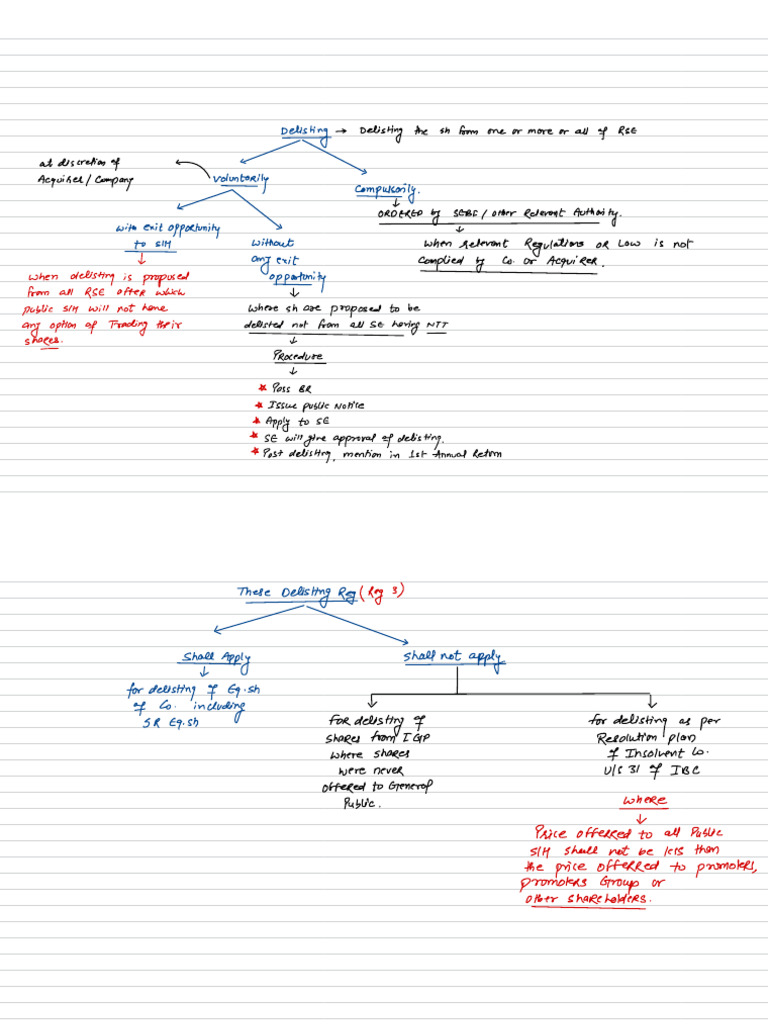 Delisting → Delisting the sh from one or more or all of RSE
at discretion of
Acquirer / Company
Voluntarily
Compulsorily.
ORDERED by SEBI / other Relevant Authority.
when relevant Regulations or Law is not
complied by Co. or Acquirer.
with exit opportunity
to S/H
when delisting is proposed
from all RSE after which
public S/H will not have
any option of Trading their
shares.
without
any exit
opportunity
where sh are proposed to be
delisted not from all SE having NTT
Procedure
★ Pass BR
★ Issue public Notice
★ Apply to SE
★ SE will give approval of delisting.
★ Post delisting, mention in 1st Annual Return
These Delisting Reg (Reg 3)
Shall Apply
for delisting of Eq.sh
of Co. including
SR Eq.sh
Shall not apply
For delisting of
shares from IGP
where shares
were never
offered to General
Public.
for delisting as per
Resolution plan
of Insolvent Co.
U/S 31 of IBC
where
Price offerred to all Public
S/H shall not be less than
the price offerred to promoters,
promoters Group or
other shareholders.